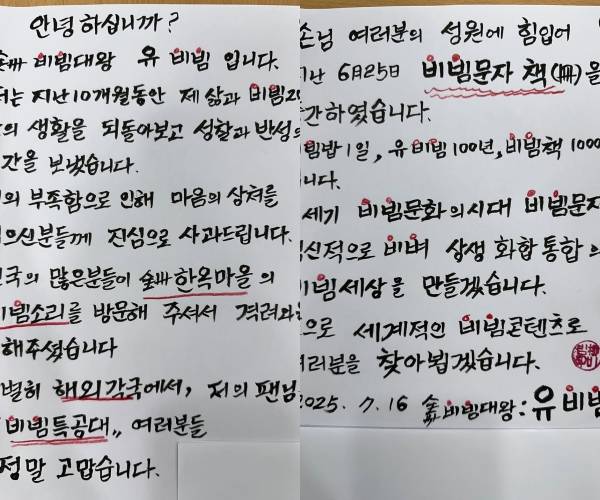 안녕하십니까?
비빔대왕 유 비빔 입니다.
는 지난10개월동안 제 삶과 비빔20
의 생활을 되돌아보고 성찰과 반성의
간을 보냈습니다.
의 부족함으로 인해 마음의 상처를
으신분들께 진심으로 사과드립니다.
국의 많은분들이 한옥마을의
비빔소리를 방문해 주셔서 격려와
해주셨습니다
별히 해외각국에서, 저의 팬님
비빔특공대,, 여러분들
정말 고맙습니다.
손님 여러분의 성원에 힘입어
난 6월25일 비빔문자 책(冊)을
간하였습니다.
빔밥1일, 유비빔100년, 비빔책1000
니다.
세기 비빔문화의시대 비빔문자
신적으로 비벼 상생 화합통합의
비빔세상을 만들겠습니다.
으로 세계적인 비빔콘텐츠로
여러분을 찾아뵙겠습니다.
2025. 7. 16 비빔대왕: 유비빔